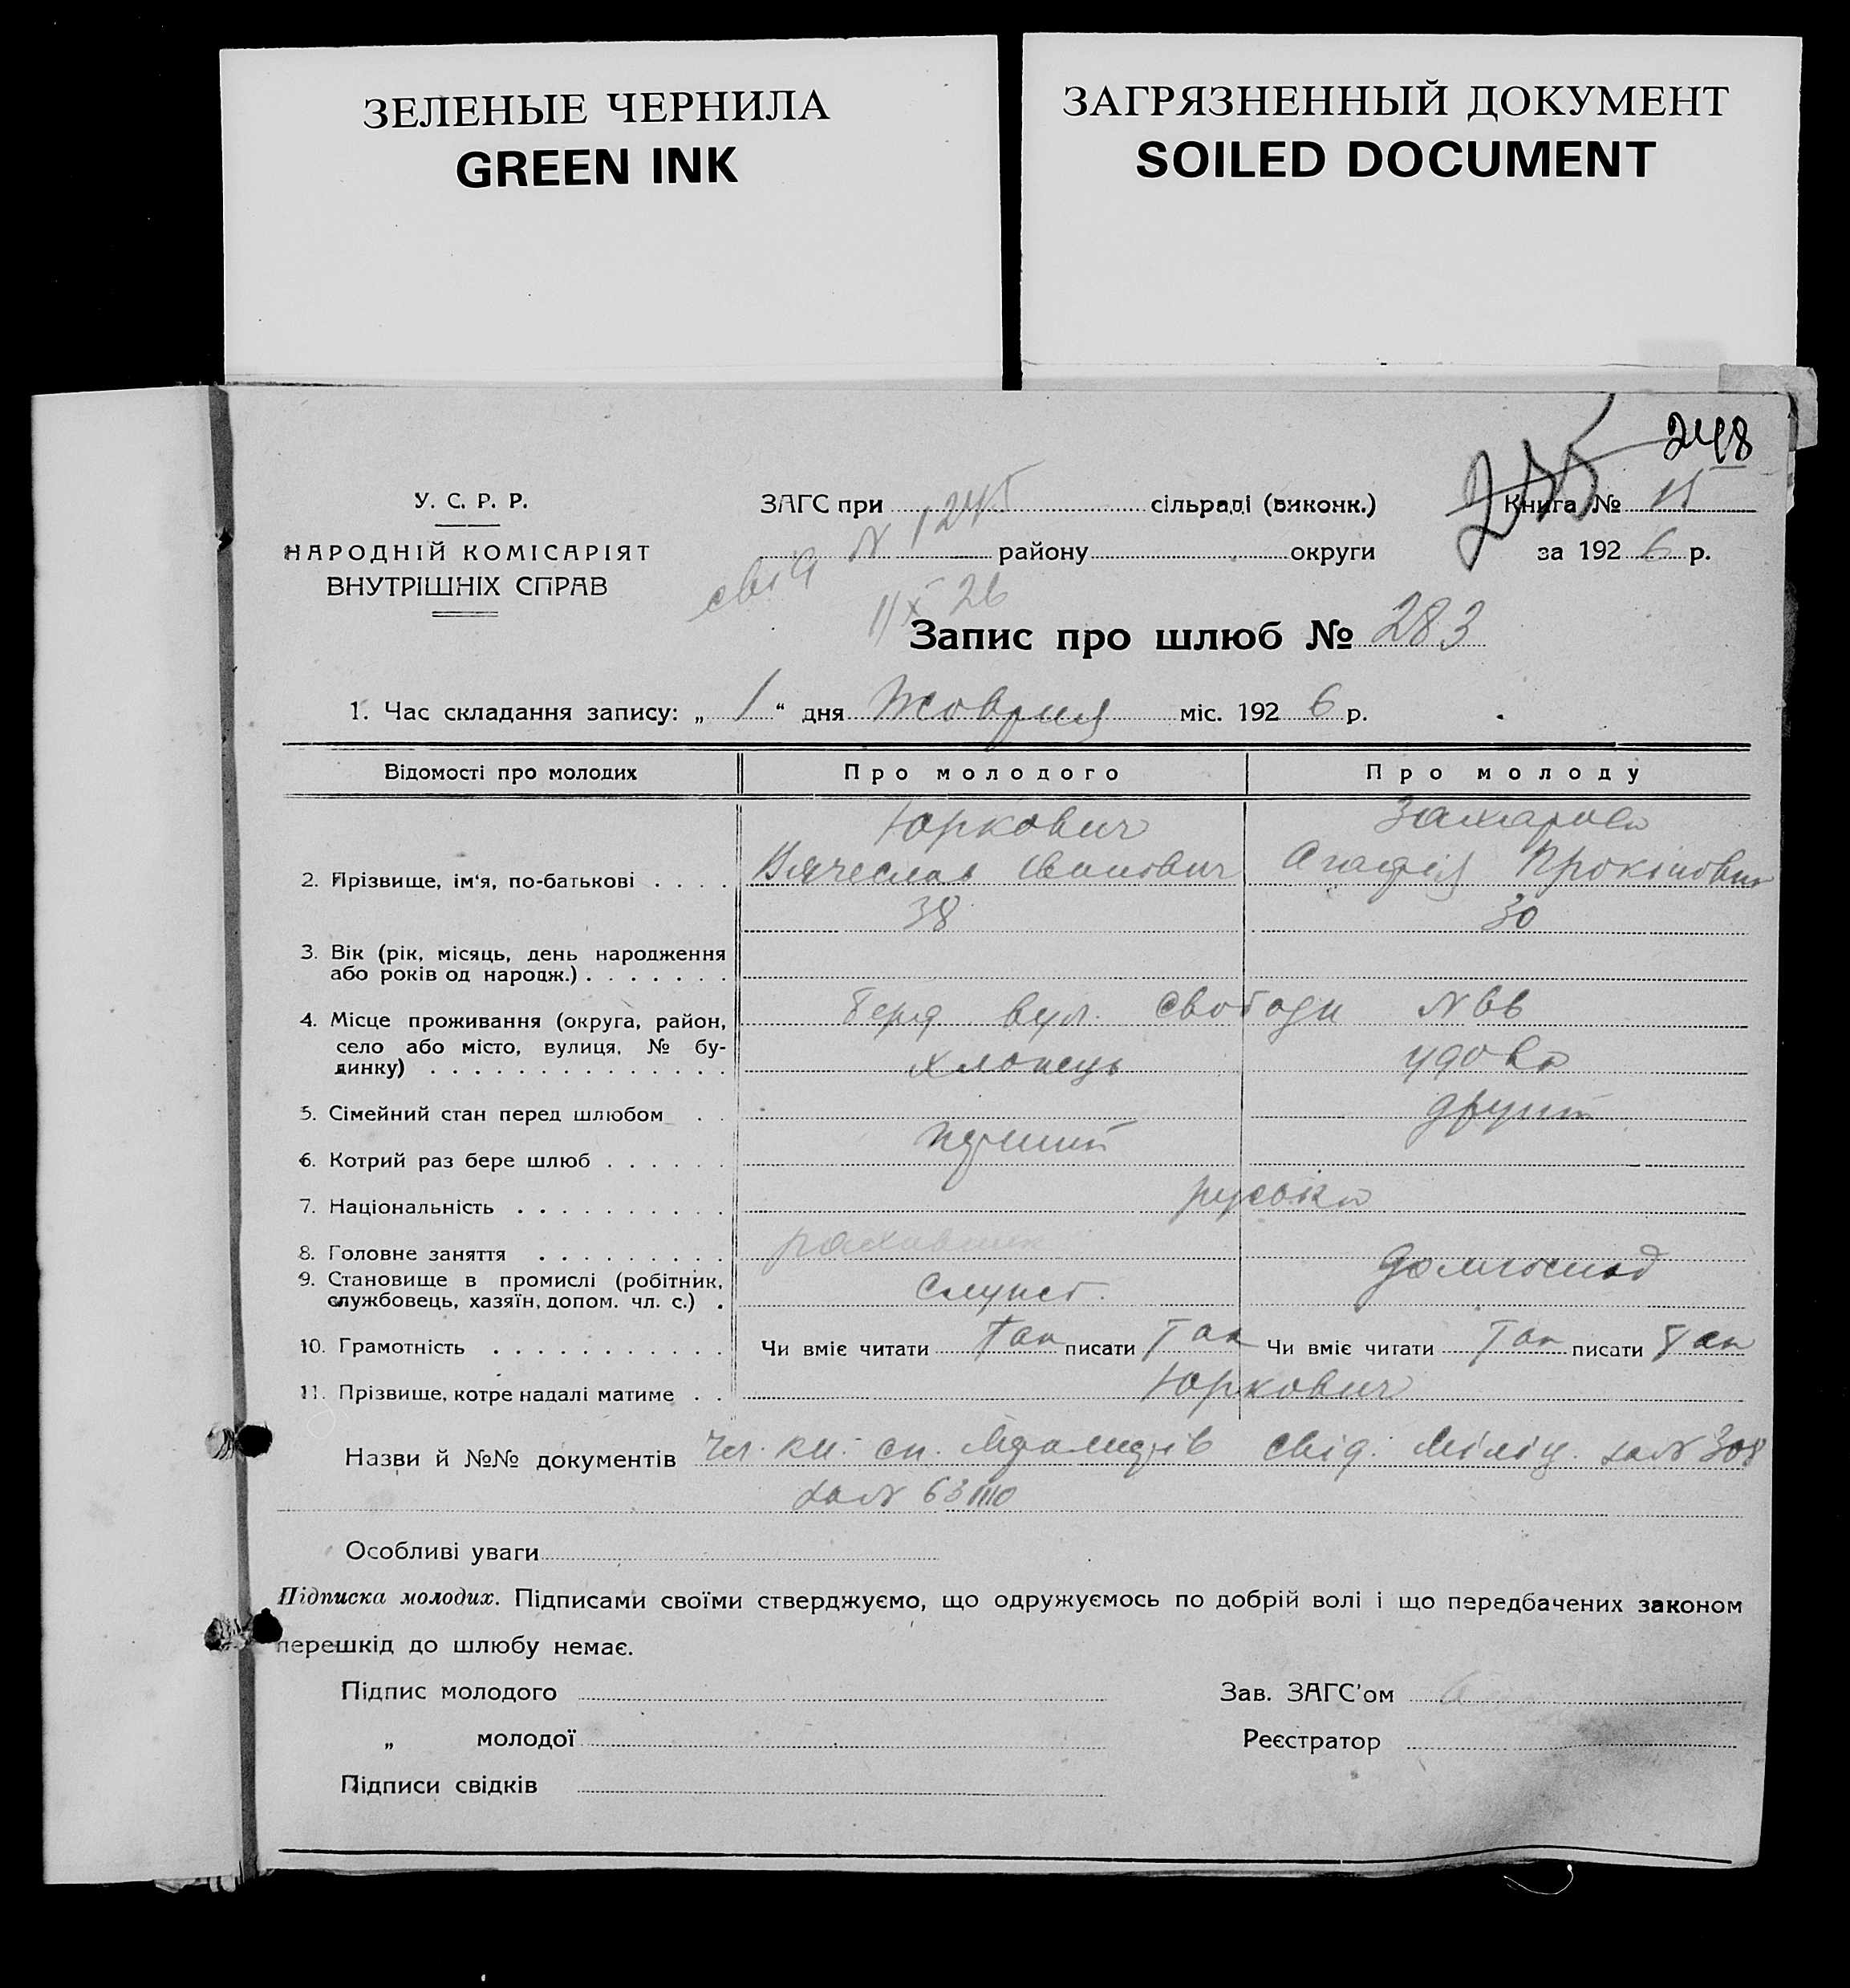 ЗЕЛЕНЫЕ ЧЕРНИЛА
GREEN INK
ЗАГРЯЗНЕННЫЙ ДОКУМЕНТ
SOILED DOCUMENT
248
255
У. С. Р. Р.
НАРОДНІЙ КОМІСАРІЯТ
ВНУТРІШНІХ СПРАВ
ЗАГС при сільраді (виконк.)
району округи
свід N 1245
1/X 26
Книга №
за 1926 р.
Запис про шлюб № 283
1. Час складання запису: „ 1 “ дня Жовтня міс. 1926 р.
Відомості про молодих Про молодого Про молоду
Юркович Захарова
2. Прізвище, ім‘я, по-батькові . . . . Вячеслав Іванович Агафія Прокіповна
38 30
3. Вік (рік, місяць, день народження
або років од народж.) . . . . . . .
4. Місце проживання (округа, район, Берд вул. Свободи N 66
село або місто, вулиця, № бу-
динку) . . . . . . . . . . . . . . хлопець удова
5. Сімейний стан перед шлюбом . . другий
6. Котрий раз бере шлюб . . . . . . перший
7. Національність . . . . . . . . . . руська
8. Головне заняття . . . . . . . . .
9. Становище в промислі (робітник, домгоспод
службовець, хазяїн, допом. чл. с.) . служб.
10. Грамотність . . . . . . . . . . . Чи вміє читати Так писати Так Чи вміє читати Так писати Так
11. Прізвище, котре надалі матиме . . Юркович
Назви й №№ документів Чл. кн. сп. свід. міліц. за N 308
за N
Особливі уваги
Підписка молодих. Підписами своїми стверджуємо, що одружуємось по добрій волі і що передбачених законом
перешкід до шлюбу немає.
Підпис молодого Зав. ЗАГС'ом
„ молодої Реєстратор
Підписи свідків